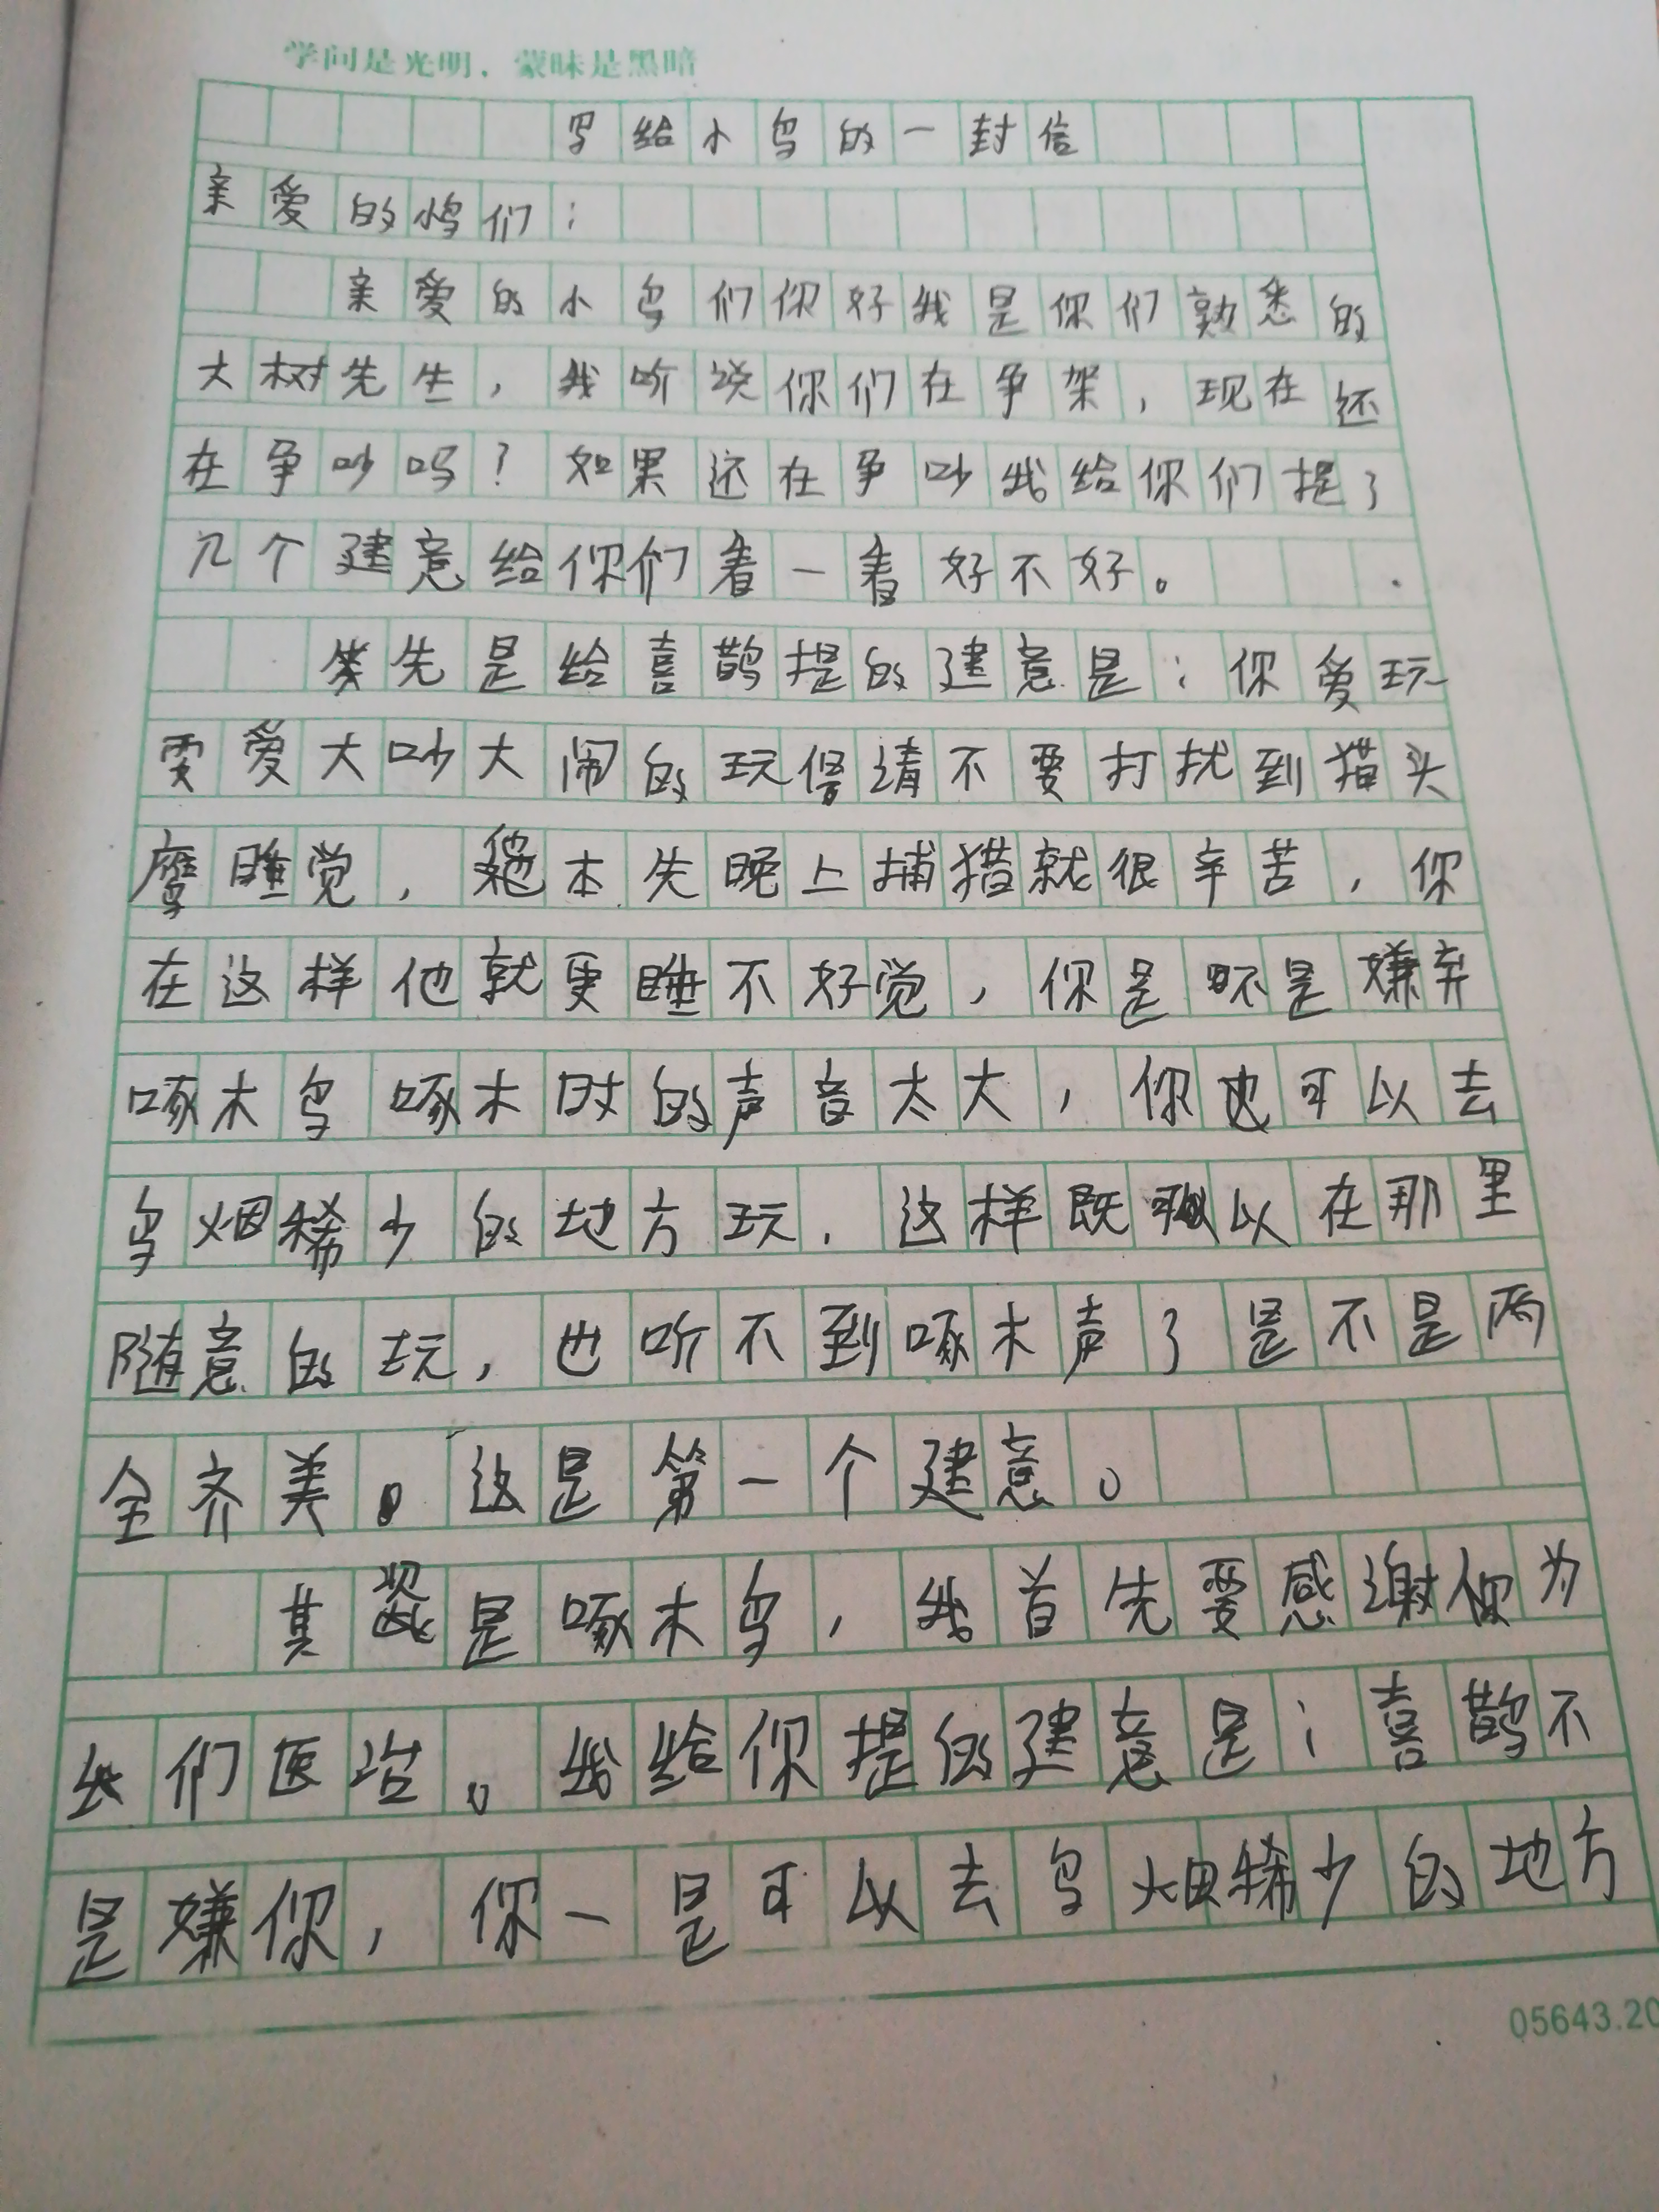 学问是光明，蒙昧是黑暗
写给小鸟的一封信
亲爱的小鸟们：
亲爱的小鸟们你好我是你们熟悉的
大树先生，我听说你们在争架，现在还
在争吵吗？如果还在争吵我给你们提了
几个建意给你们看一看好不好。
先是给喜鹊提的建意是：你爱玩
要爱大吵大闹的玩 请不要打扰到猫头
鹰睡觉，他本先晚上捕猎就很辛苦，你
在这样他就更睡不好觉，你是不是嫌弃
啄木鸟啄木时的声音太大，你也可以去
鸟烟稀少的地方玩．这样既可以在那里
随意的玩，也听不到啄木声了是不是两
全齐美。这是第一个建意。
其次是啄木鸟，我首先要感谢你为
我们医治。我给你提的建意是：喜鹊不
是嫌你，你一是可以去鸟烟稀少的地方
05643.20